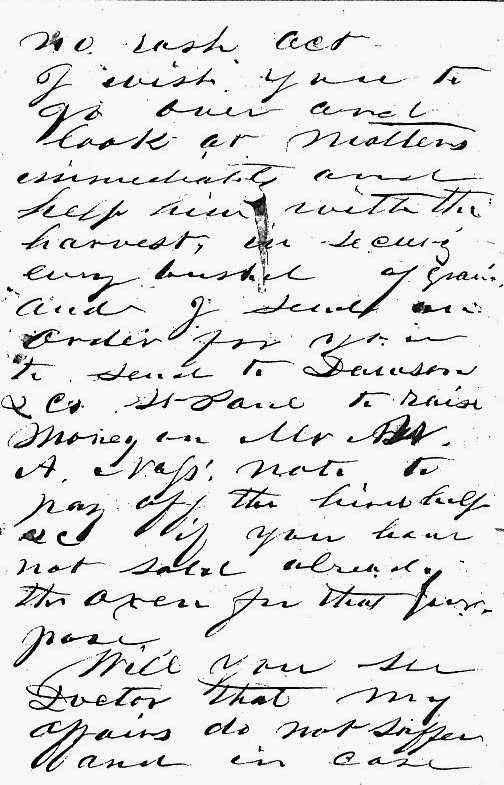 no rash act
I wish you to
go over and
look at matters
immediately and
help him with the
harvest, in securing
every bushel of grain
and I send an
order for you
to send to Dawson
& Co St Paul to raise
money on Mr
A. Nass' note to
pay off the hired help
&c if you have
not sold already
the oxen for that pur-
pose
Will you see
Doctor that my
affairs do not suffer
and in case